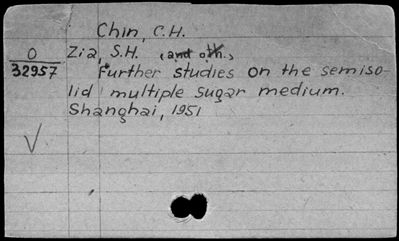 Chin, C.H.
O Zia, S.H. (and oth.)
32957 Further studies on the semiso-
lid multiple sugar medium.
Shanghai, 1951